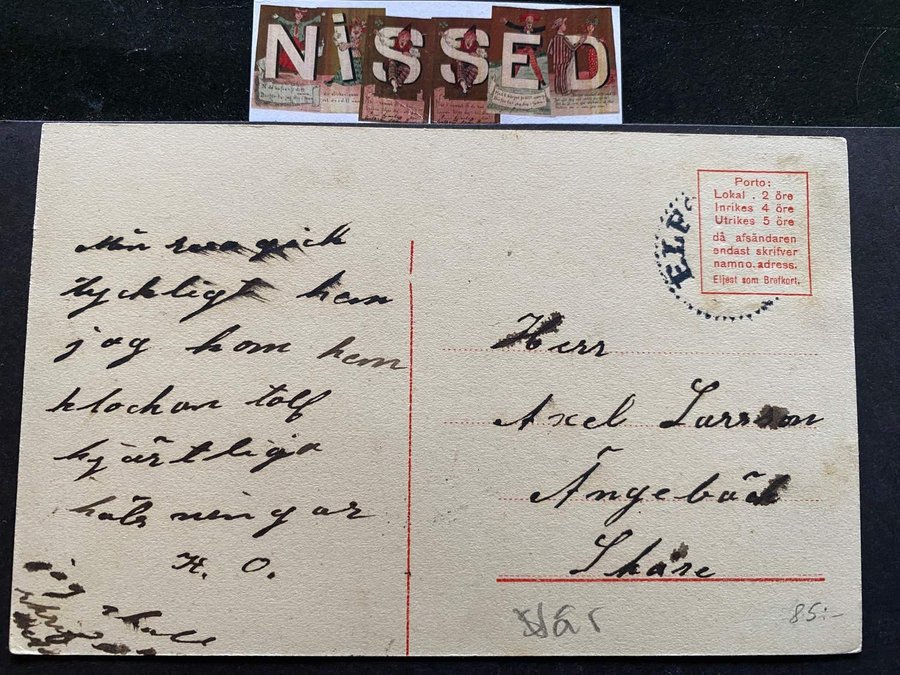 NiSSED
Min resa gick
lyckligt hem
jag kom hem
klockan tolf
hjärtliga
hälsningar
K. O.
jag skall
Porto:
Lokal . 2 öre
Inrikes 4 öre
Utrikes 5 öre
då afsändaren
endast skrifver
namn o. adress.
Eljest som Brefkort.
ELP
Herr
Axel Larsson
Ängebäck
Skåre
85:-